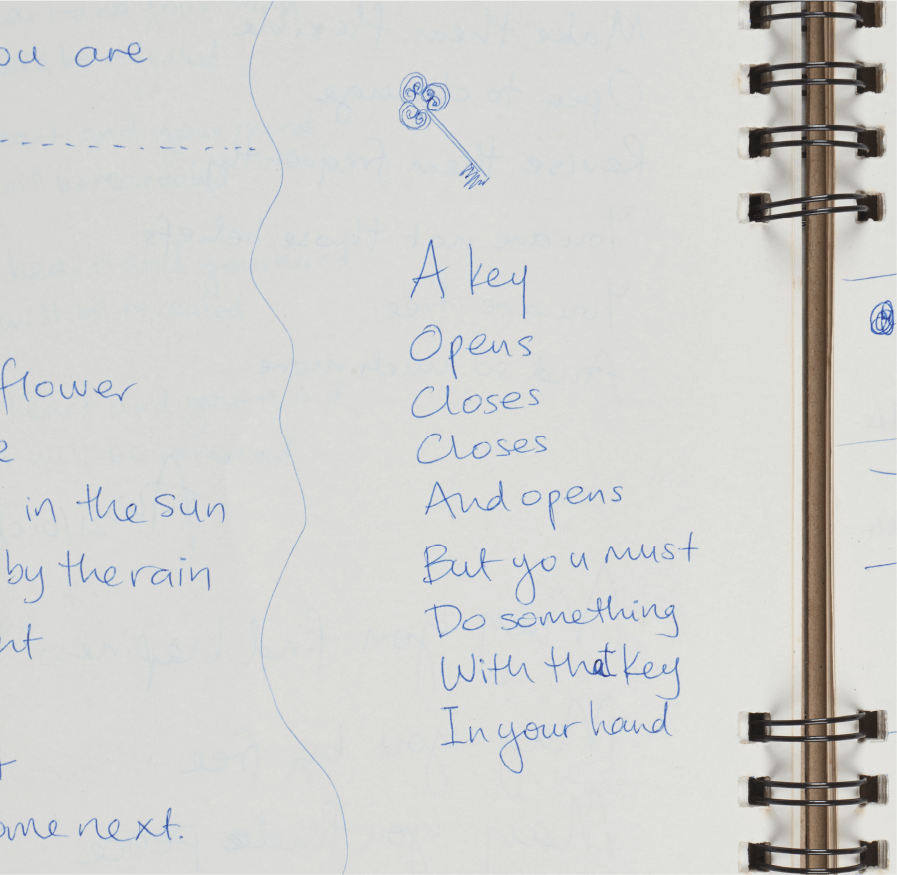 you are
flower
in the sun
by the rain
next.
A key
Opens
Closes
Closes
And opens
But you must
Do something
With that key
In your hand